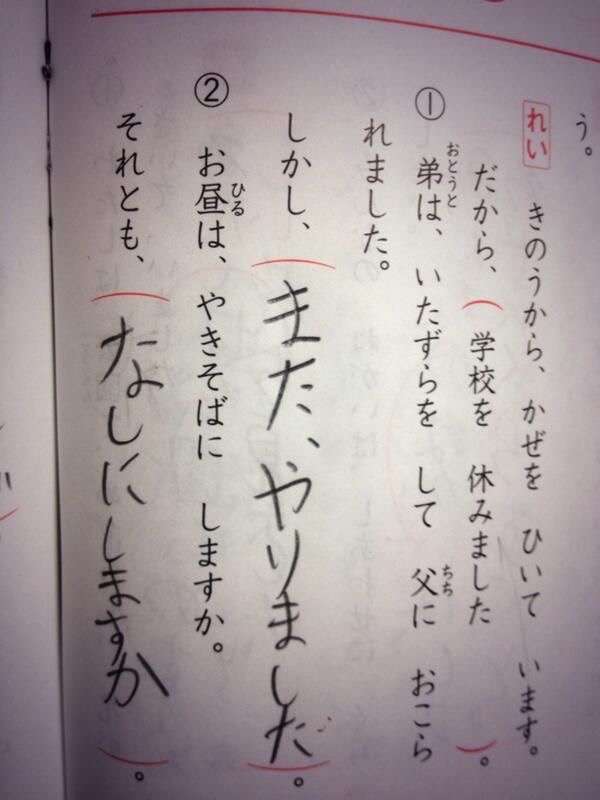 う。
れい きのうから、かぜを ひいて います。
だから、( 学校を 休みました )。
① 弟は、いたずらを して 父に おこら
おとうと
ちち
れました。
しかし、( また、やりました )。
② お昼は、やきそばに しますか。
ひる
それとも、( なしにしますか )。